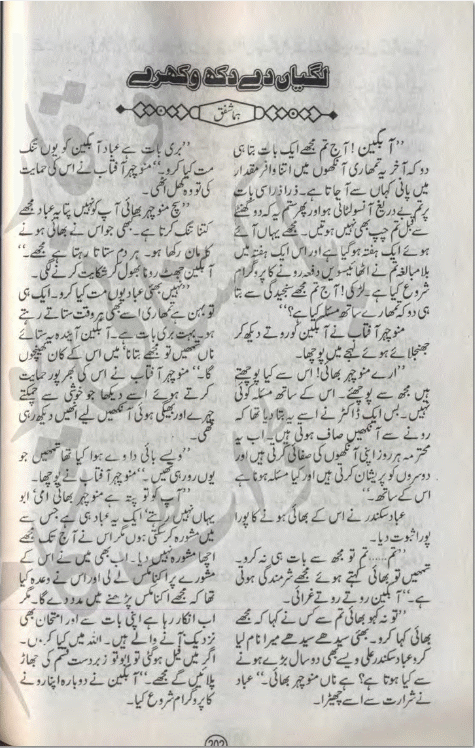 لگیاں دے دکھ وکھرے
ہما شفق
”آ بگین! آج تم مجھے ایک بات بتا ہی
دو کہ آخر یہ تمھاری آنکھوں میں اتنا وافر مقدار
میں پانی کہاں سے آ جاتا ہے۔ ذرا ذرا سی بات
پر تم بے دریغ آنسو لٹاتی ہو اور پھر ستم یہ کہ دو گھنٹے
سے قبل تم چپ بھی نہیں ہوتیں۔ مجھے یہاں آئے
ہوئے ایک ہفتہ ہو گیا ہے اور اس ایک ہفتہ میں
بلا مبالغہ تم نے اٹھائیسویں دفعہ رونے کا پروگرام
شروع کیا ہے۔ لڑکی! آج تم مجھے سنجیدگی سے بتا
ہی دو کہ تمھارے ساتھ مسئلہ کیا ہے؟“
منوچہر آفتاب نے آبگین کو روتے دیکھ کر
جھنجلائے ہوئے لہجے میں پوچھا۔
”ارے منوچہر بھائی! اس سے کیا پوچھتے
ہیں مجھ سے پوچھئے۔ اس کے ساتھ مسئلہ کوئی
نہیں۔ بس ایک ڈاکٹر نے اسے یہ بتا دیا تھا کہ
رونے سے آنکھیں صاف ہوتی ہیں۔ اب یہ
محترمہ ہر روز اپنی آنکھوں کی صفائی کرتی ہیں اور
دوسروں کو پریشان کرتی ہیں اور کیا مسئلہ ہونا ہے
اس کے ساتھ۔“
عباد سکندر نے اس کے بھائی ہونے کا پورا
پورا ثبوت دیا۔
”تم...... تم تو مجھ سے بات ہی نہ کرو۔
تمہیں تو بھائی کہتے ہوئے مجھے شرمندگی ہوتی
ہے۔“ آبگین روتے روتے غرائی۔
”تو نہ کہو بھائی تم سے کس نے کہا کہ مجھے
بھائی کہا کرو۔ بھئی سیدھے سیدھے میرا نام لیا
کرو عباد سکندر علی ویسے بھی دو سال بڑے ہونے
سے کیا ہوتا ہے؟ ہے ناں منوچہر بھائی۔“ عباد
نے شرارت سے اسے چھیڑا۔
”بری بات ہے عباد آبگین کو یوں تنگ
مت کیا کرو۔“ منوچہر آفتاب نے اس کی حمایت
کی تو وہ کھل اٹھی۔
”سچ منوچہر بھائی آپ کو نہیں پتا یہ عباد مجھے
کتنا تنگ کرتا ہے۔ کبھی جو اس نے بھائی ہونے
کا مان رکھا ہو۔ ہر دم ستاتا رہتا ہے مجھے۔“
آبگین جھٹ رونا بھول کر شکایت کرنے لگی۔
”نہیں بھئی عباد یوں مت کیا کرو۔ ایک ہی
تو بہن ہے تمھاری اسے بھی ہر وقت ستاتے رہتے
ہو۔ بہت بری بات ہے۔ آبگین آئندہ یہ ستائے
ناں تمہیں تو مجھے بتانا میں اس کے کان کھینچوں
گا۔“ منوچہر آفتاب نے اس کی بھرپور حمایت
کرتے ہوئے اسے دیکھا جو خوشی سے چمکتے
چہرے اور بھیگی ہوئی آنکھیں لیے انھیں دیکھ رہی
تھی۔
”ویسے بائی دا وے ہوا کیا تھا تمہیں جو
یوں رو رہی تھیں۔“ منوچہر آفتاب نے پوچھا۔
”آپ کو تو پتہ ہے منوچہر بھائی امی ابو
یہاں نہیں رہتے ایک یہ عباد ہی ہے جس سے
میں مشورہ کر سکتی ہوں مگر اس نے آج تک مجھے
اچھا مشورہ نہیں دیا۔ اب بھی میں نے اس کے
مشورے پر اکنامکس لے لی اور اس نے وعدہ کیا
تھا کہ مجھے اکنامکس پڑھنے میں مدد دے گا۔ مگر
اب انکار رہا ہے اپنی بات سے اور امتحان بھی
نزدیک آنے والے ہیں۔ اللہ میں کیا کروں۔
اگر میں فیل ہو گئی تو ابو تو زبردست قسم کی جھاڑ
پلائیں گے مجھے۔“ آبگین نے دوبارہ اپنا رونے
کا پروگرام شروع کیا۔
202